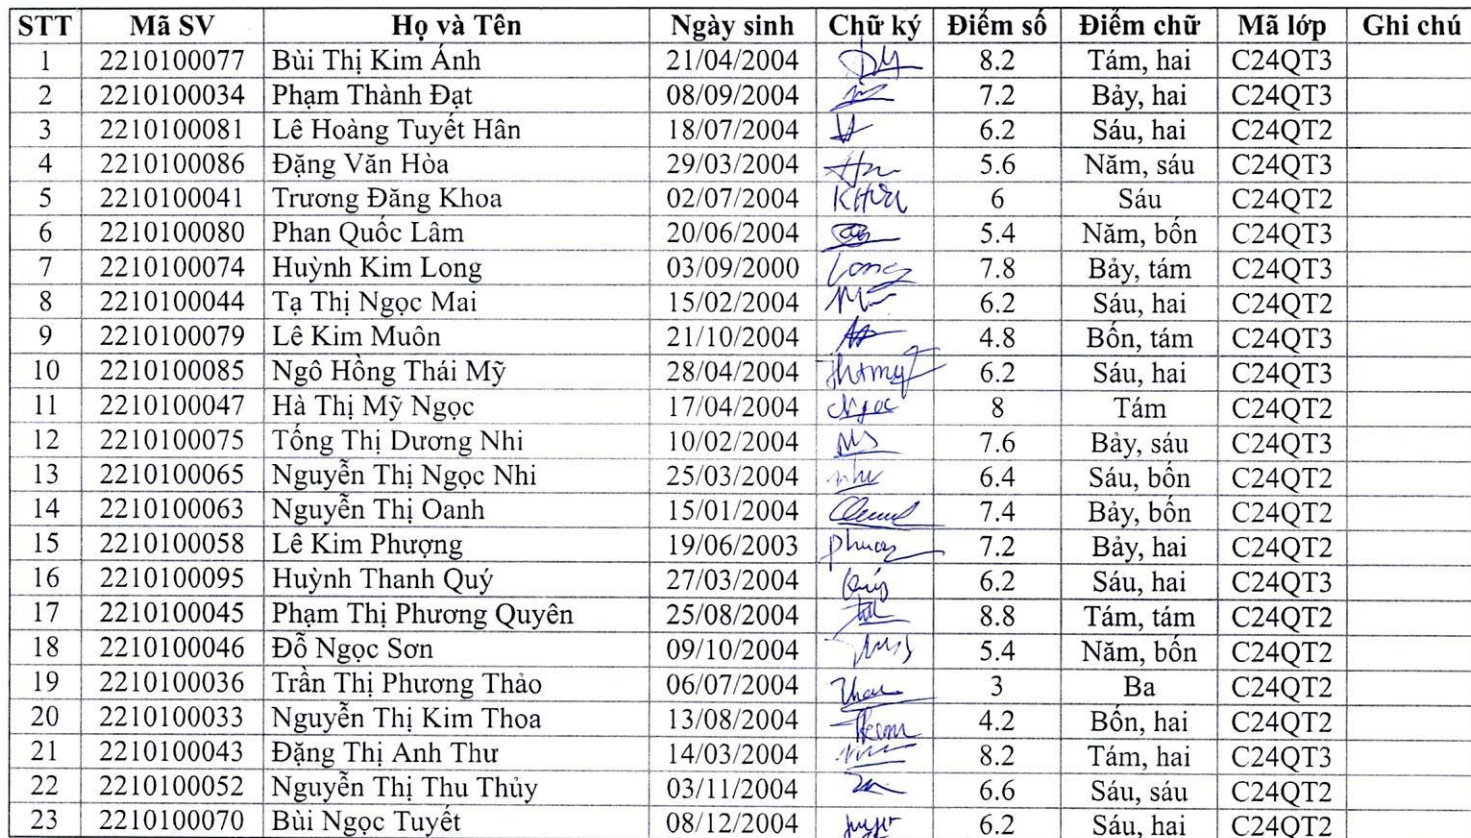 STT Mã SV Họ và Tên Ngày sinh Chữ ký Điểm số Điểm chữ Mã lớp Ghi chú
1 2210100077 Bùi Thị Kim Ánh 21/04/2004 8.2 Tám, hai C24QT3
2 2210100034 Phạm Thành Đạt 08/09/2004 7.2 Bảy, hai C24QT3
3 2210100081 Lê Hoàng Tuyết Hân 18/07/2004 6.2 Sáu, hai C24QT2
4 2210100086 Đặng Văn Hòa 29/03/2004 5.6 Năm, sáu C24QT3
5 2210100041 Trương Đăng Khoa 02/07/2004 6 Sáu C24QT2
6 2210100080 Phan Quốc Lâm 20/06/2004 5.4 Năm, bốn C24QT3
7 2210100074 Huỳnh Kim Long 03/09/2000 Long 7.8 Bảy, tám C24QT3
8 2210100044 Tạ Thị Ngọc Mai 15/02/2004 6.2 Sáu, hai C24QT2
9 2210100079 Lê Kim Muôn 21/10/2004 4.8 Bốn, tám C24QT3
10 2210100085 Ngô Hồng Thái Mỹ 28/04/2004 6.2 Sáu, hai C24QT3
11 2210100047 Hà Thị Mỹ Ngọc 17/04/2004 Ngọc 8 Tám C24QT2
12 2210100075 Tống Thị Dương Nhi 10/02/2004 7.6 Bảy, sáu C24QT3
13 2210100065 Nguyễn Thị Ngọc Nhi 25/03/2004 6.4 Sáu, bốn C24QT2
14 2210100063 Nguyễn Thị Oanh 15/01/2004 7.4 Bảy, bốn C24QT2
15 2210100058 Lê Kim Phượng 19/06/2003 7.2 Bảy, hai C24QT2
16 2210100095 Huỳnh Thanh Quý 27/03/2004 6.2 Sáu, hai C24QT3
17 2210100045 Phạm Thị Phương Quyên 25/08/2004 8.8 Tám, tám C24QT2
18 2210100046 Đỗ Ngọc Sơn 09/10/2004 5.4 Năm, bốn C24QT2
19 2210100036 Trần Thị Phương Thảo 06/07/2004 3 Ba C24QT2
20 2210100033 Nguyễn Thị Kim Thoa 13/08/2004 4.2 Bốn, hai C24QT2
21 2210100043 Đặng Thị Anh Thư 14/03/2004 8.2 Tám, hai C24QT3
22 2210100052 Nguyễn Thị Thu Thủy 03/11/2004 6.6 Sáu, sáu C24QT2
23 2210100070 Bùi Ngọc Tuyết 08/12/2004 6.2 Sáu, hai C24QT2